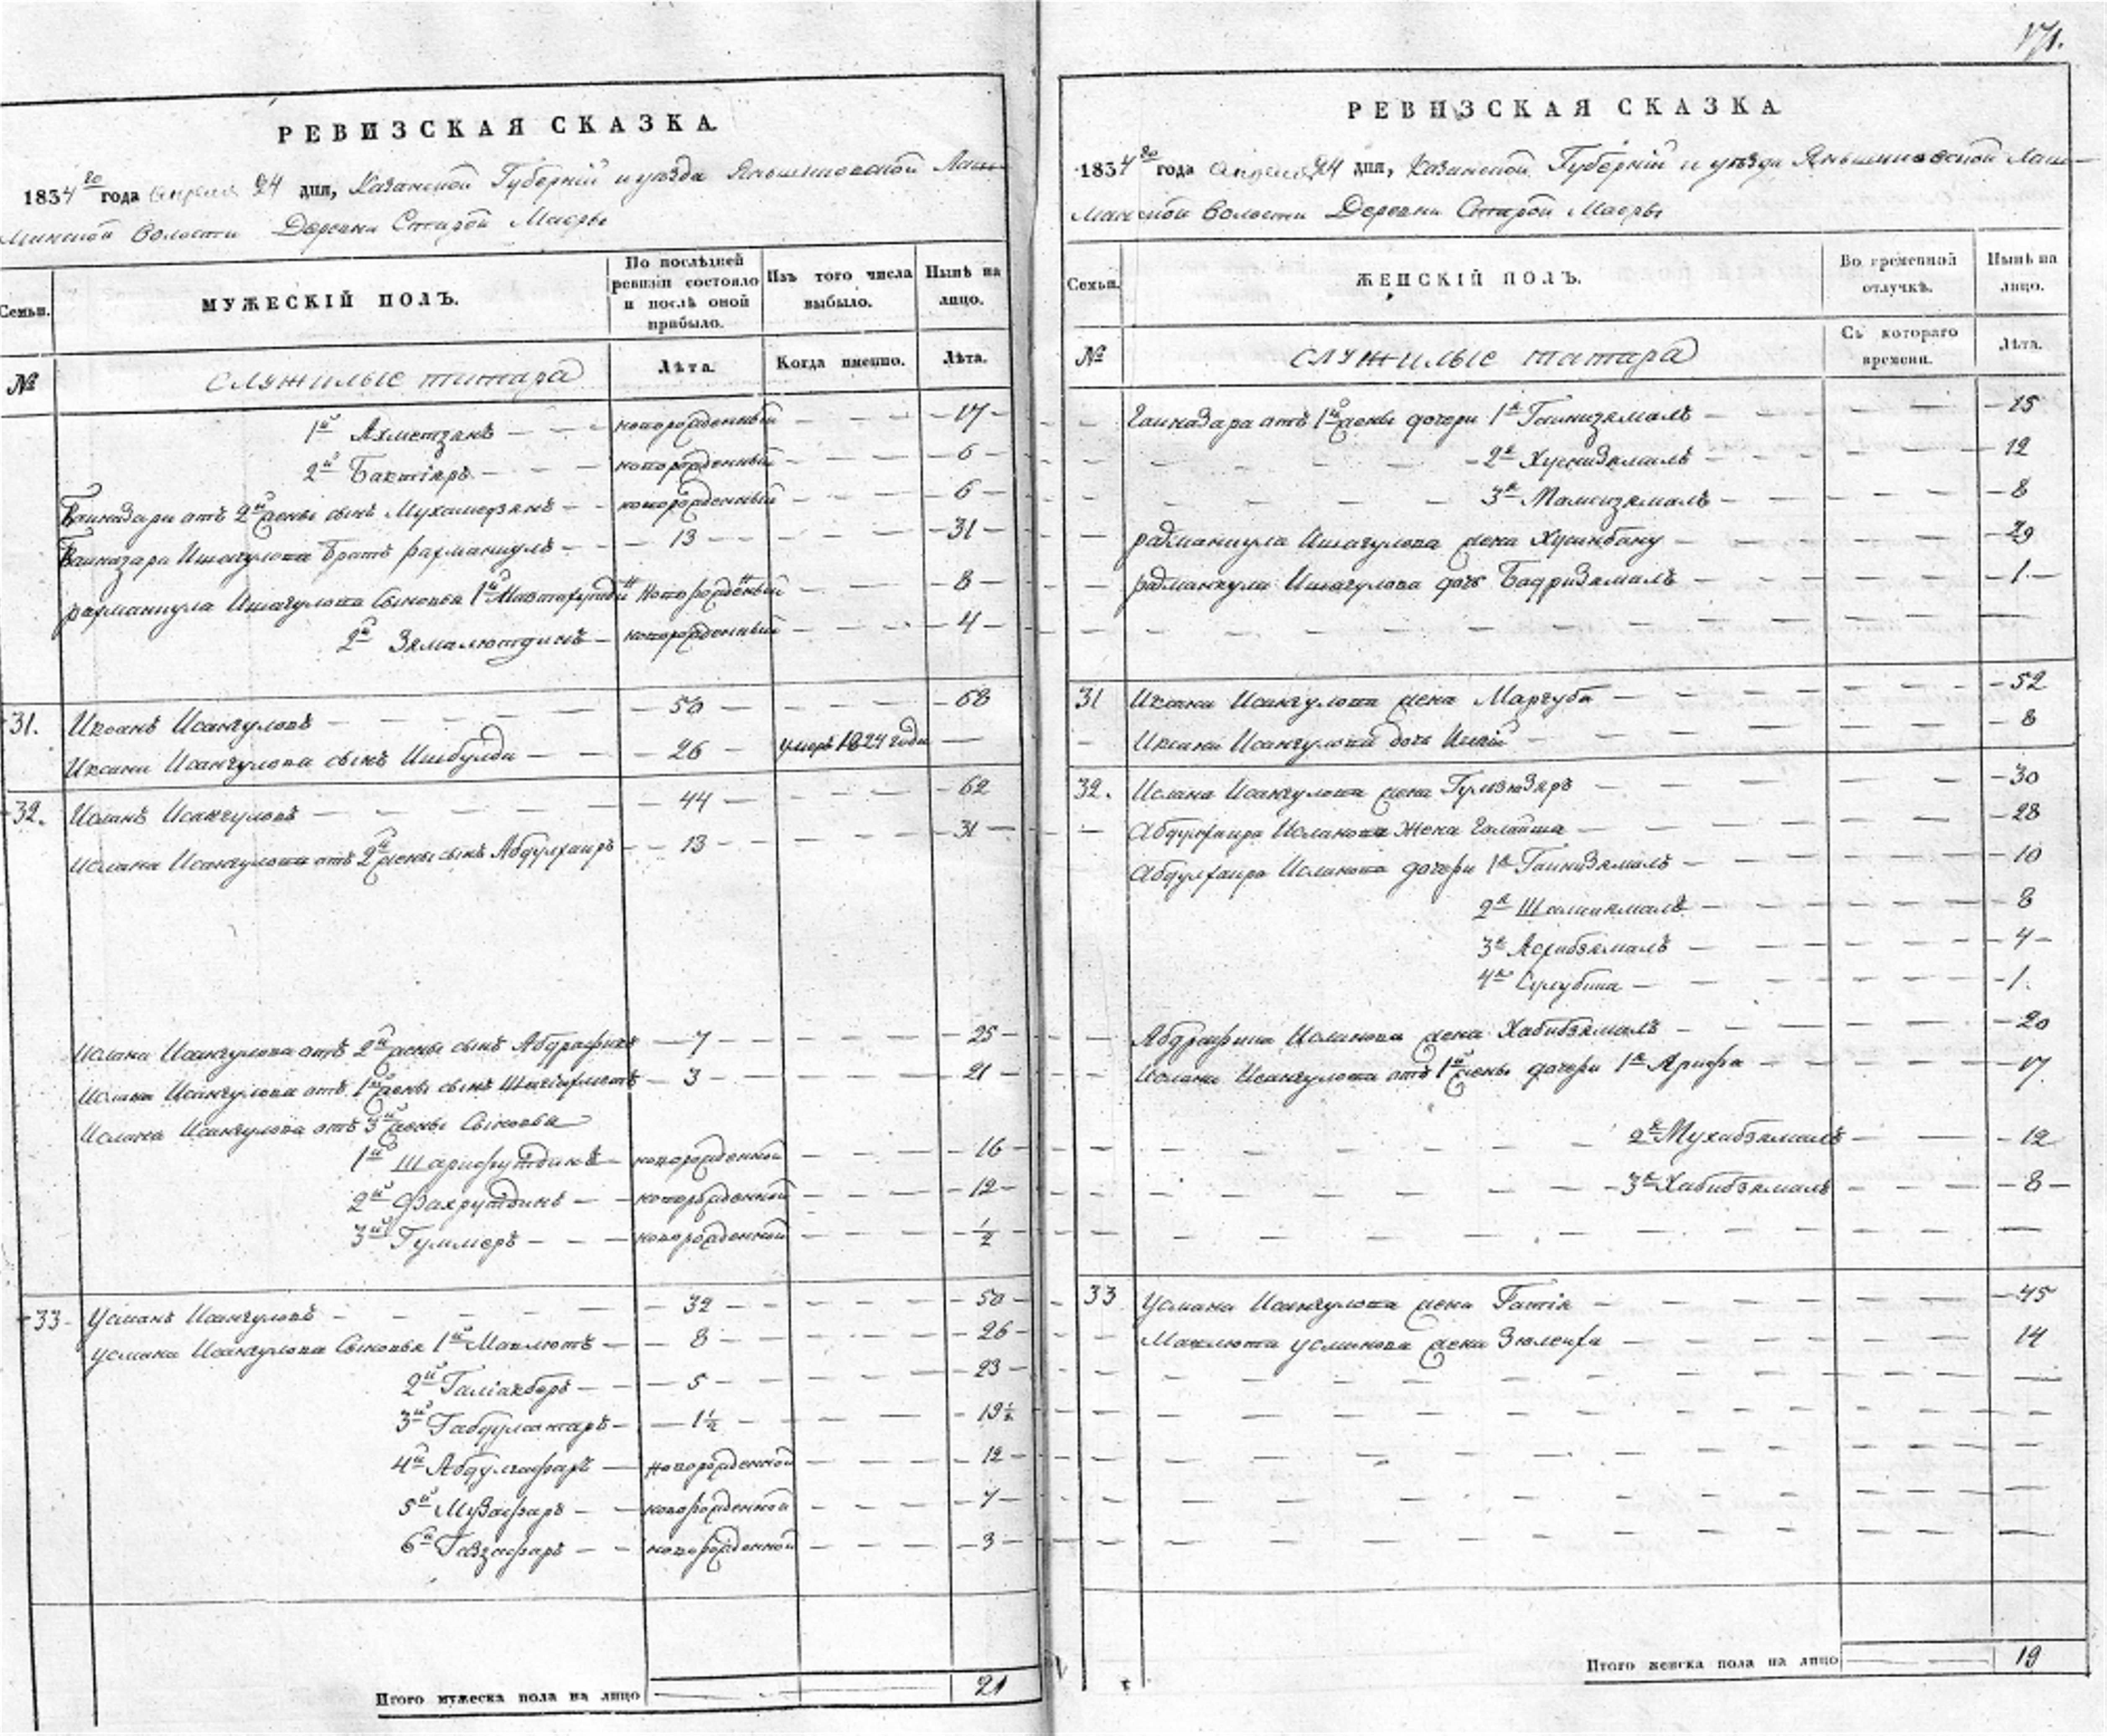 171.
РЕВИЗСКАЯ СКАЗКА
1834го года апреля 24 дня, Казанской Губерніи и уезда Яньшиховской Лаи-
Деревни Старой Масры
Семьи. МУЖЕСКІЙ ПОЛЪ. По послѣдней ревизіи состояло и послѣ оной прибыло. Изъ того числа выбыло. Нынѣ на лицо.
№ служилые татара Лѣта. Когда именно. Лѣта.
1й Ахметзянъ — новорожденный — 17
2й Бактіяръ — новорожденный — 6
от 2й жены сынъ Мухамедзянъ — новорожденный — 6
Ишагулова братъ рахманкулъ — 13 — 31
рахманкула Ишагулова сыновья 1й новорожденый — 8
2й Зямалютдинъ — новорожденный — 4
31. Иксанъ Исангуловъ — 56 — 68
Иксана Исангулова сынъ Ишбулды — 26 — умеръ 1824 года —
32. Исланъ Исангуловъ — 44 — 62
Ислана Исангулова отъ 2й жены сынъ Абдулхаиръ — 13 — 31
Ислана Исангулова отъ 2й жены сынъ Абдрафикъ — 7 — 25
Ислана Исангулова отъ 1й жены сынъ Шагіахметъ — 3 — 21
Ислана Исангулова отъ 3й жены сыновья
1й Шарифутдинъ — новорожденной — 16
2й Фахрутдинъ — новорожденной — 12
3й Гуммеръ — новорожденной — ½
33 Усманъ Исангуловъ — 32 — 50
Усмана Исангулова сыновья 1й Мавлютъ — 8 — 26
2й Галіакберъ — 5 — 23
3й Габдулсатаръ — 1½ — 19½
4й Абдулгафаръ — новорожденной — 12
5й Музафаръ — новорожденной — 7
6й Газзафаръ — новорожденной — 3
Итого мужеска пола на лицо 21
РЕВИЗСКАЯ СКАЗКА
1834го года апреля 24 дня, Казанской Губерніи и уезда Яньшиховской Лаи-
Деревни Старой Масры
Семьи. ЖЕНСКІЙ ПОЛЪ. Во временной отлучкѣ. Нынѣ на лицо.
№ служилые татара Съ котораго времени. Лѣта.
отъ 1й жены дочери 1я — 15
2я Хуснизямалъ — 12
3я — 8
рахманкула Ишагулова жена Хусниба́ну — 29
рахманкула Ишагулова дочь Бадризямалъ — 1
31 Иксана Исангулова жена Маргуба — 52
Иксана Исангулова дочь — 8
32. Ислана Исангулова жена Гулбизяръ — 30
Абдулхаира Исланова жена Галайша — 28
Абдулхаира Исланова дочери 1я Гайнизямалъ — 10
2я — 8
3я — 4
4я — 1
Абдрафика Исланова жена Хабибзямалъ — 20
Ислана Исангулова отъ 1й жены дочери 1я Арифа — 17
2я Мухибзямалъ — 12
3я Хабибзямалъ — 8
33 Усмана Исангулова жена Гатія — 45
Мавлюта Усманова жена Зюлейха — 14
Итого женска пола на лицо 19